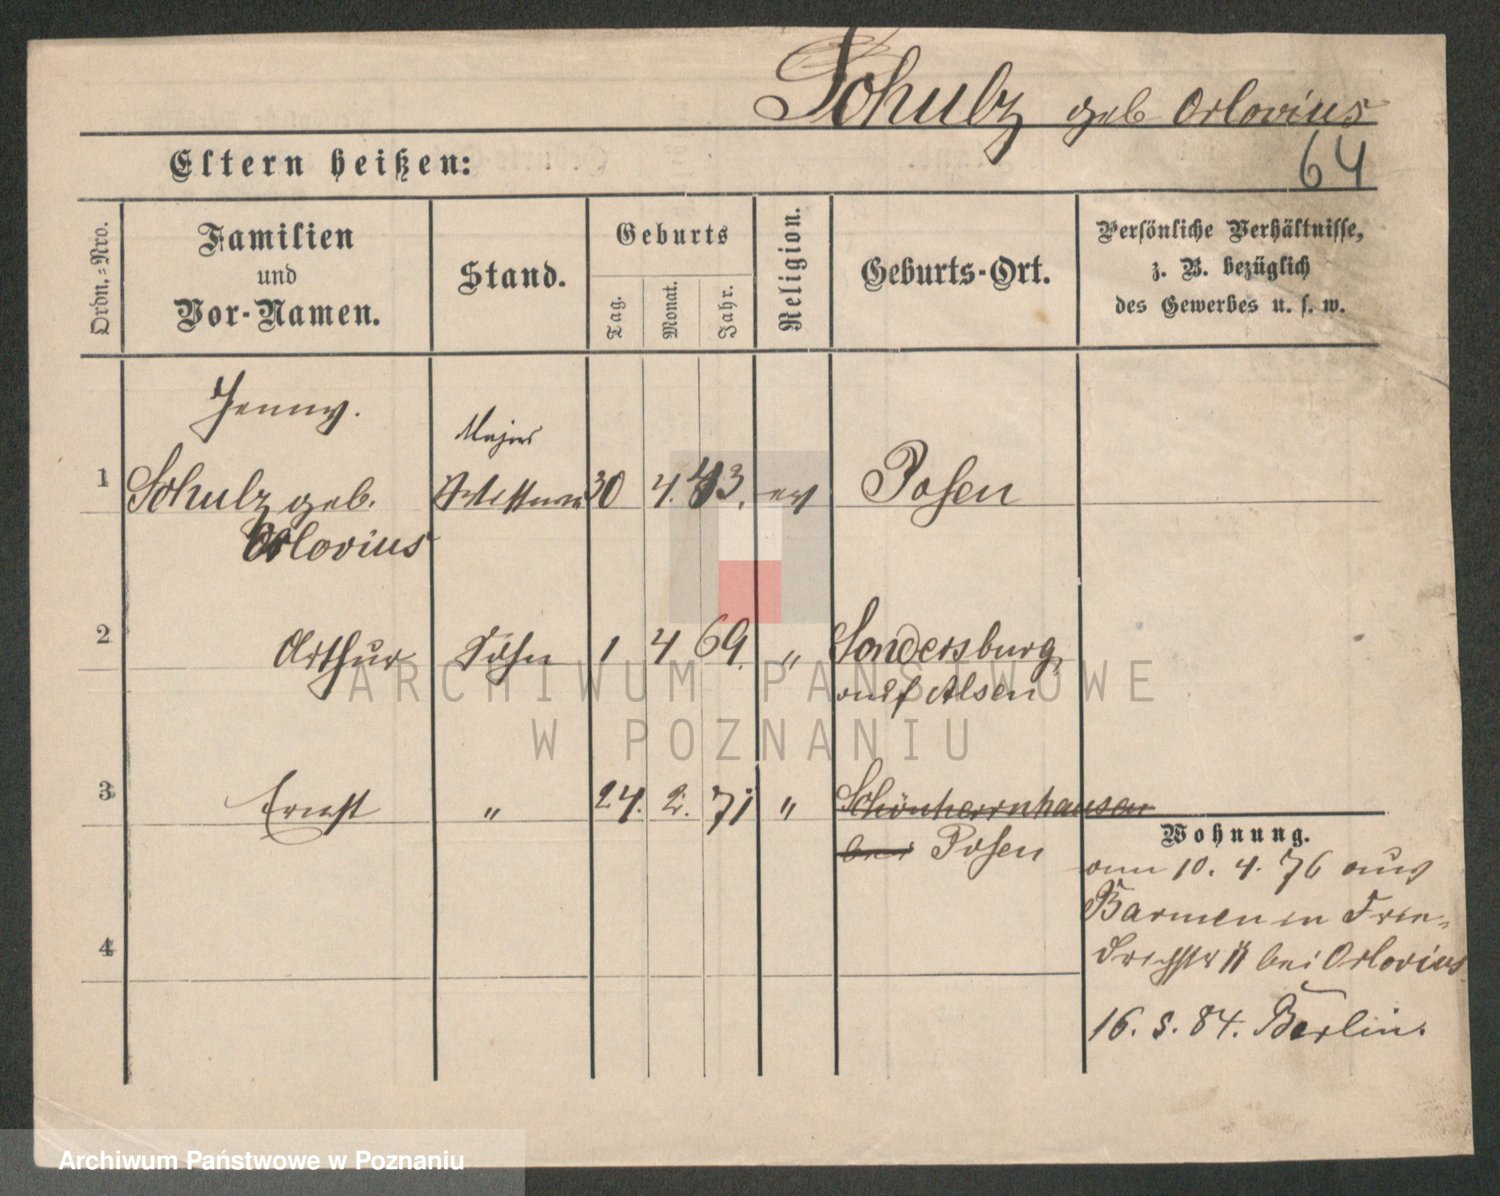 Schulz geb Orlovius
64
Eltern heißen:
Ordn.=Nro.
Familien
und
Vor-Namen.
Stand.
Geburts
Tag.
Monat.
Jahr.
Religion.
Geburts-Ort.
Persönliche Verhältnisse,
z. B. bezüglich
des Gewerbes u. s. w.
Jenny.
1 Schulz geb. Majors 30 4. 43. ev Posen
Orlovius
2 Arthur Sohn 1 4 69. " Sondersburg,
auf Alsen
3 Ernst " 24. 2. 71 " Schönherrnhausen
bei Posen
Wohnung.
am 10. 4. 76 aus
Barmen in Frie-
drichstr 11 bei Orlovius
4
16. 5. 84. Berlin.
ARCHIWUM PAŃSTWOWE
W POZNANIU
Archiwum Państwowe w Poznaniu